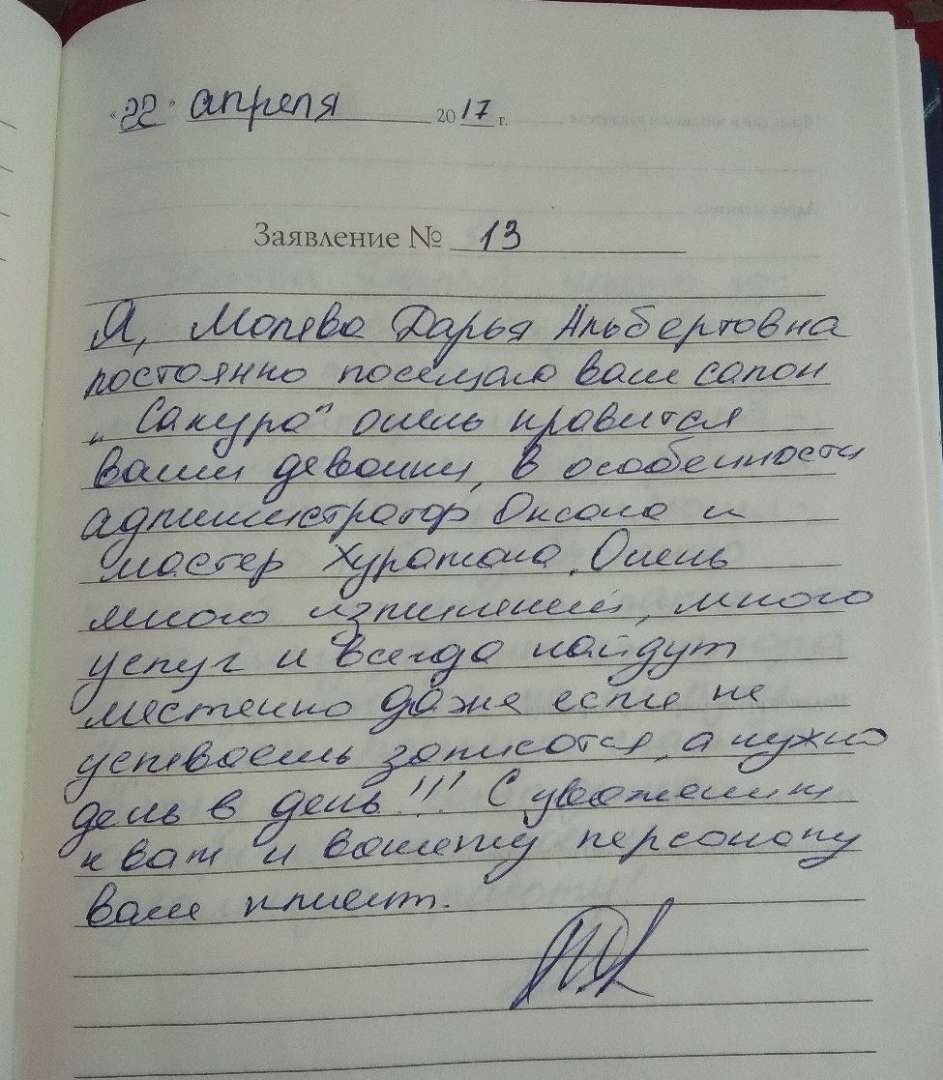 "22" апреля 2017 г.
Заявление № 13
Я, Молява Дарья Альбертовна
постоянно посещаю ваш салон
„Сакура" очень нравится
ваши девочки, в особенности
администратор Оксана и
мастер Хуратона. Очень
много изменений, много
услуг и всегда найдут
местечко даже если не
успеваешь записатся, а нужно
день в день!!! С уважением
к вам и вашему персоналу
ваш клиент.